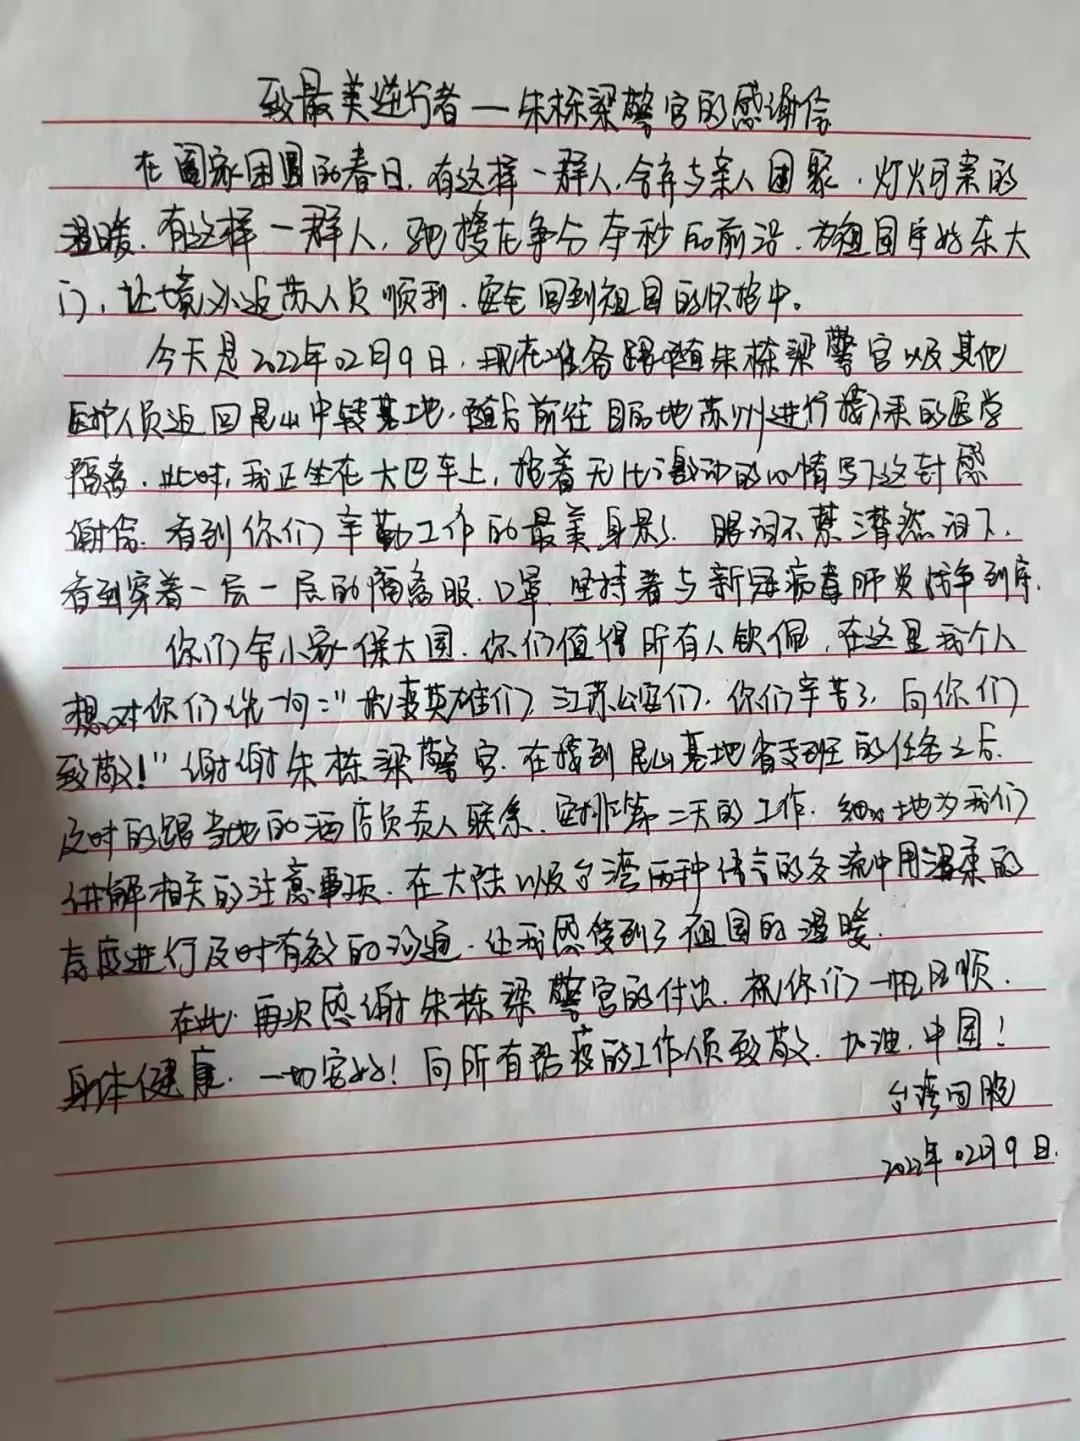 致最美逆行者一朱栋梁警官的感谢信
在阖家团圆的春日,有这样一群人,舍弃与亲人团聚.灯火可亲的
温暖.有这样一群人,驰援在争分夺秒的前沿.为祖国守好东大
门,让境外返苏人员顺利.安全回到祖国的怀抱中。
今天是2022年02月9日.现在准备跟随朱栋梁警官以及其他
医护人员返回昆山中转基地.随后前往目的地苏州进行接下来的医学
隔离.此时,我正坐在大巴车上,抱着无比激动的心情写下这封感
谢信.看到你们辛勤工作的最美身影.眼泪不禁潸然泪下.
看到穿着一层一层的隔离服.口罩.坚持着与新冠病毒肺炎战争到底.
你们舍小家保大国.你们值得所有人钦佩.在这里我个人
想对你们说一句:"抗疫英雄们,江苏公安们.你们辛苦了,向你们
致敬!"谢谢朱栋梁警官.在接到昆山基地省专班的任务之后.
及时的跟当地的酒店负责人联系.安排第二天的工作.细心地为我们
讲解相关的注意事项.在大陆以及台湾两种语言的交流中用温柔的
态度进行及时有效的沟通.让我感受到了祖国的温暖.
在此.再次感谢朱栋梁警官的付出.祝你们一帆风顺.
身体健康.一切安好!向所有抗疫的工作人员致敬.加油.中国!
台湾同胞
2022年02月9日.